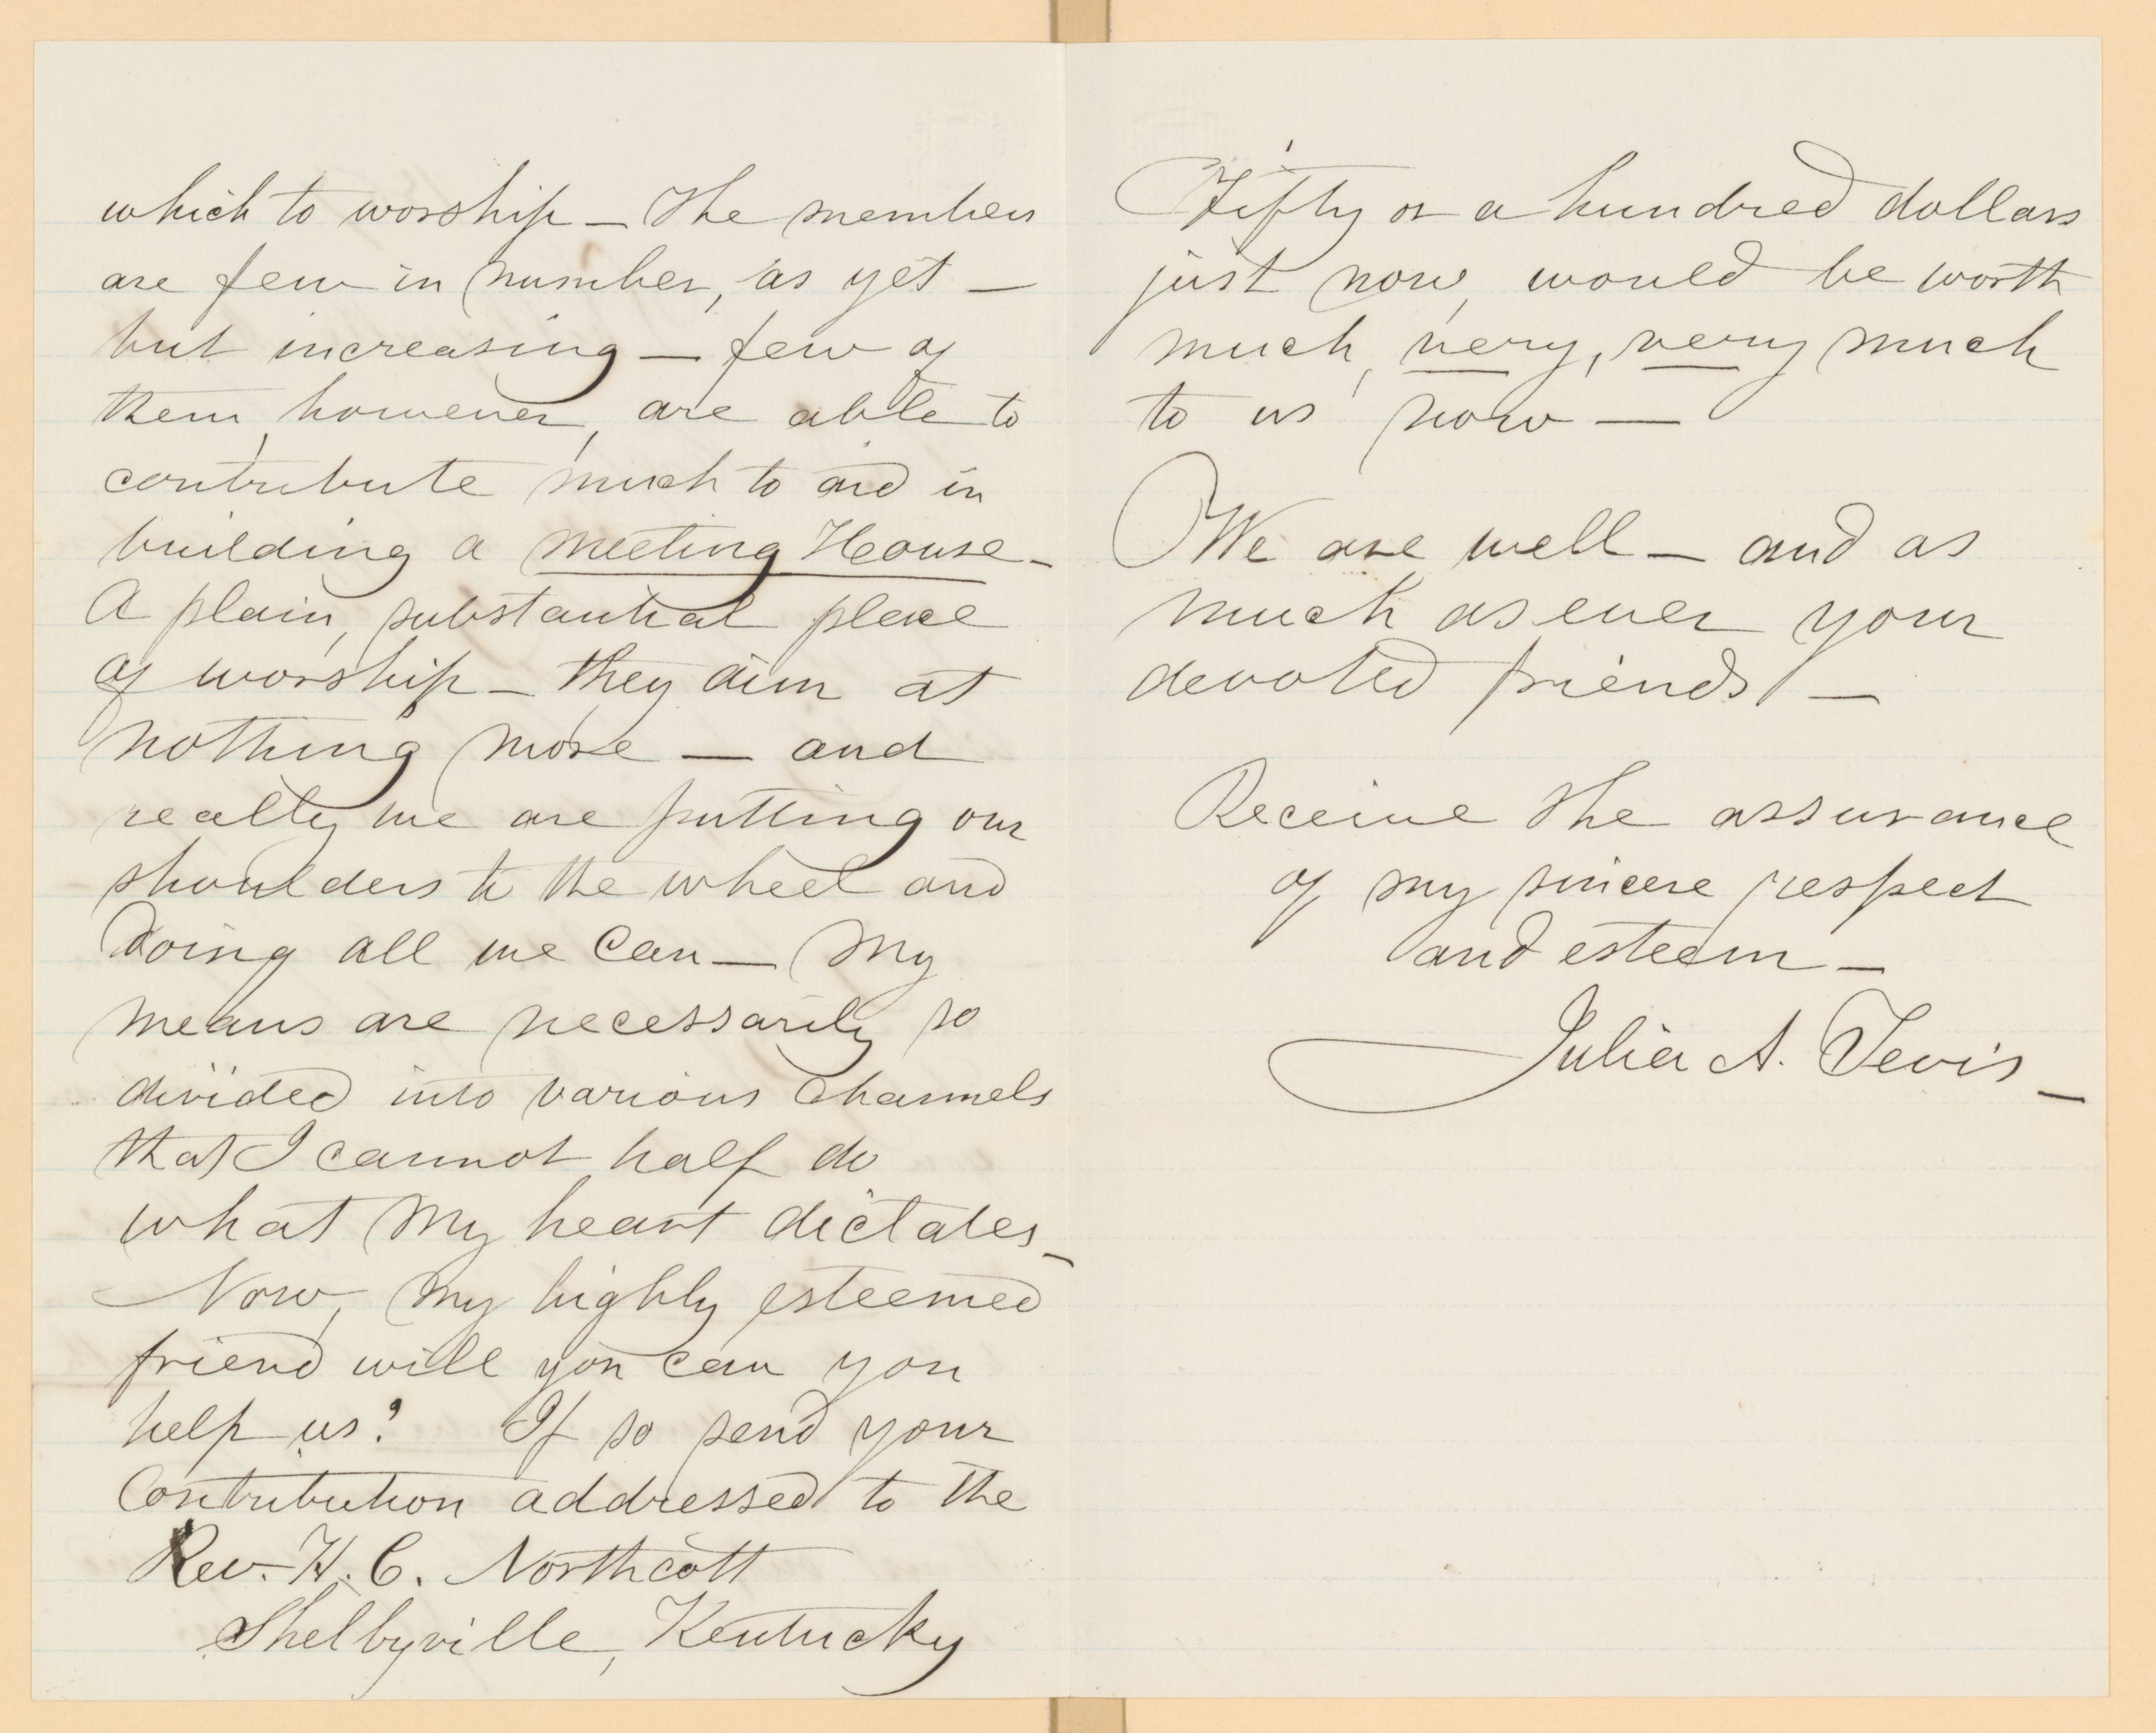 which to worship — The members
are few in number, as yet —
but increasing — few of
them, however, are able to
contribute much to aid in
building a meeting House —
A plain, substantial place
of worship — they aim at
nothing more — and
really we are putting our
shoulders to the wheel and
doing all we can — My
means are necessarily so
divided into various channels
that I cannot half do
what my heart dictates —
Now, my highly esteemed
friend will you can you
help us? If so send your
Contribution addressed to the
Rev. H. C. Northcott
Shelbyville, Kentucky
Fifty or a hundred dollars
just now, would be worth
much, very, very much
to us now —
We are well — and as
much as ever your
devoted friends —
Receive the assurance
of my sincere respect
and esteem —
Julia A. Tevis —